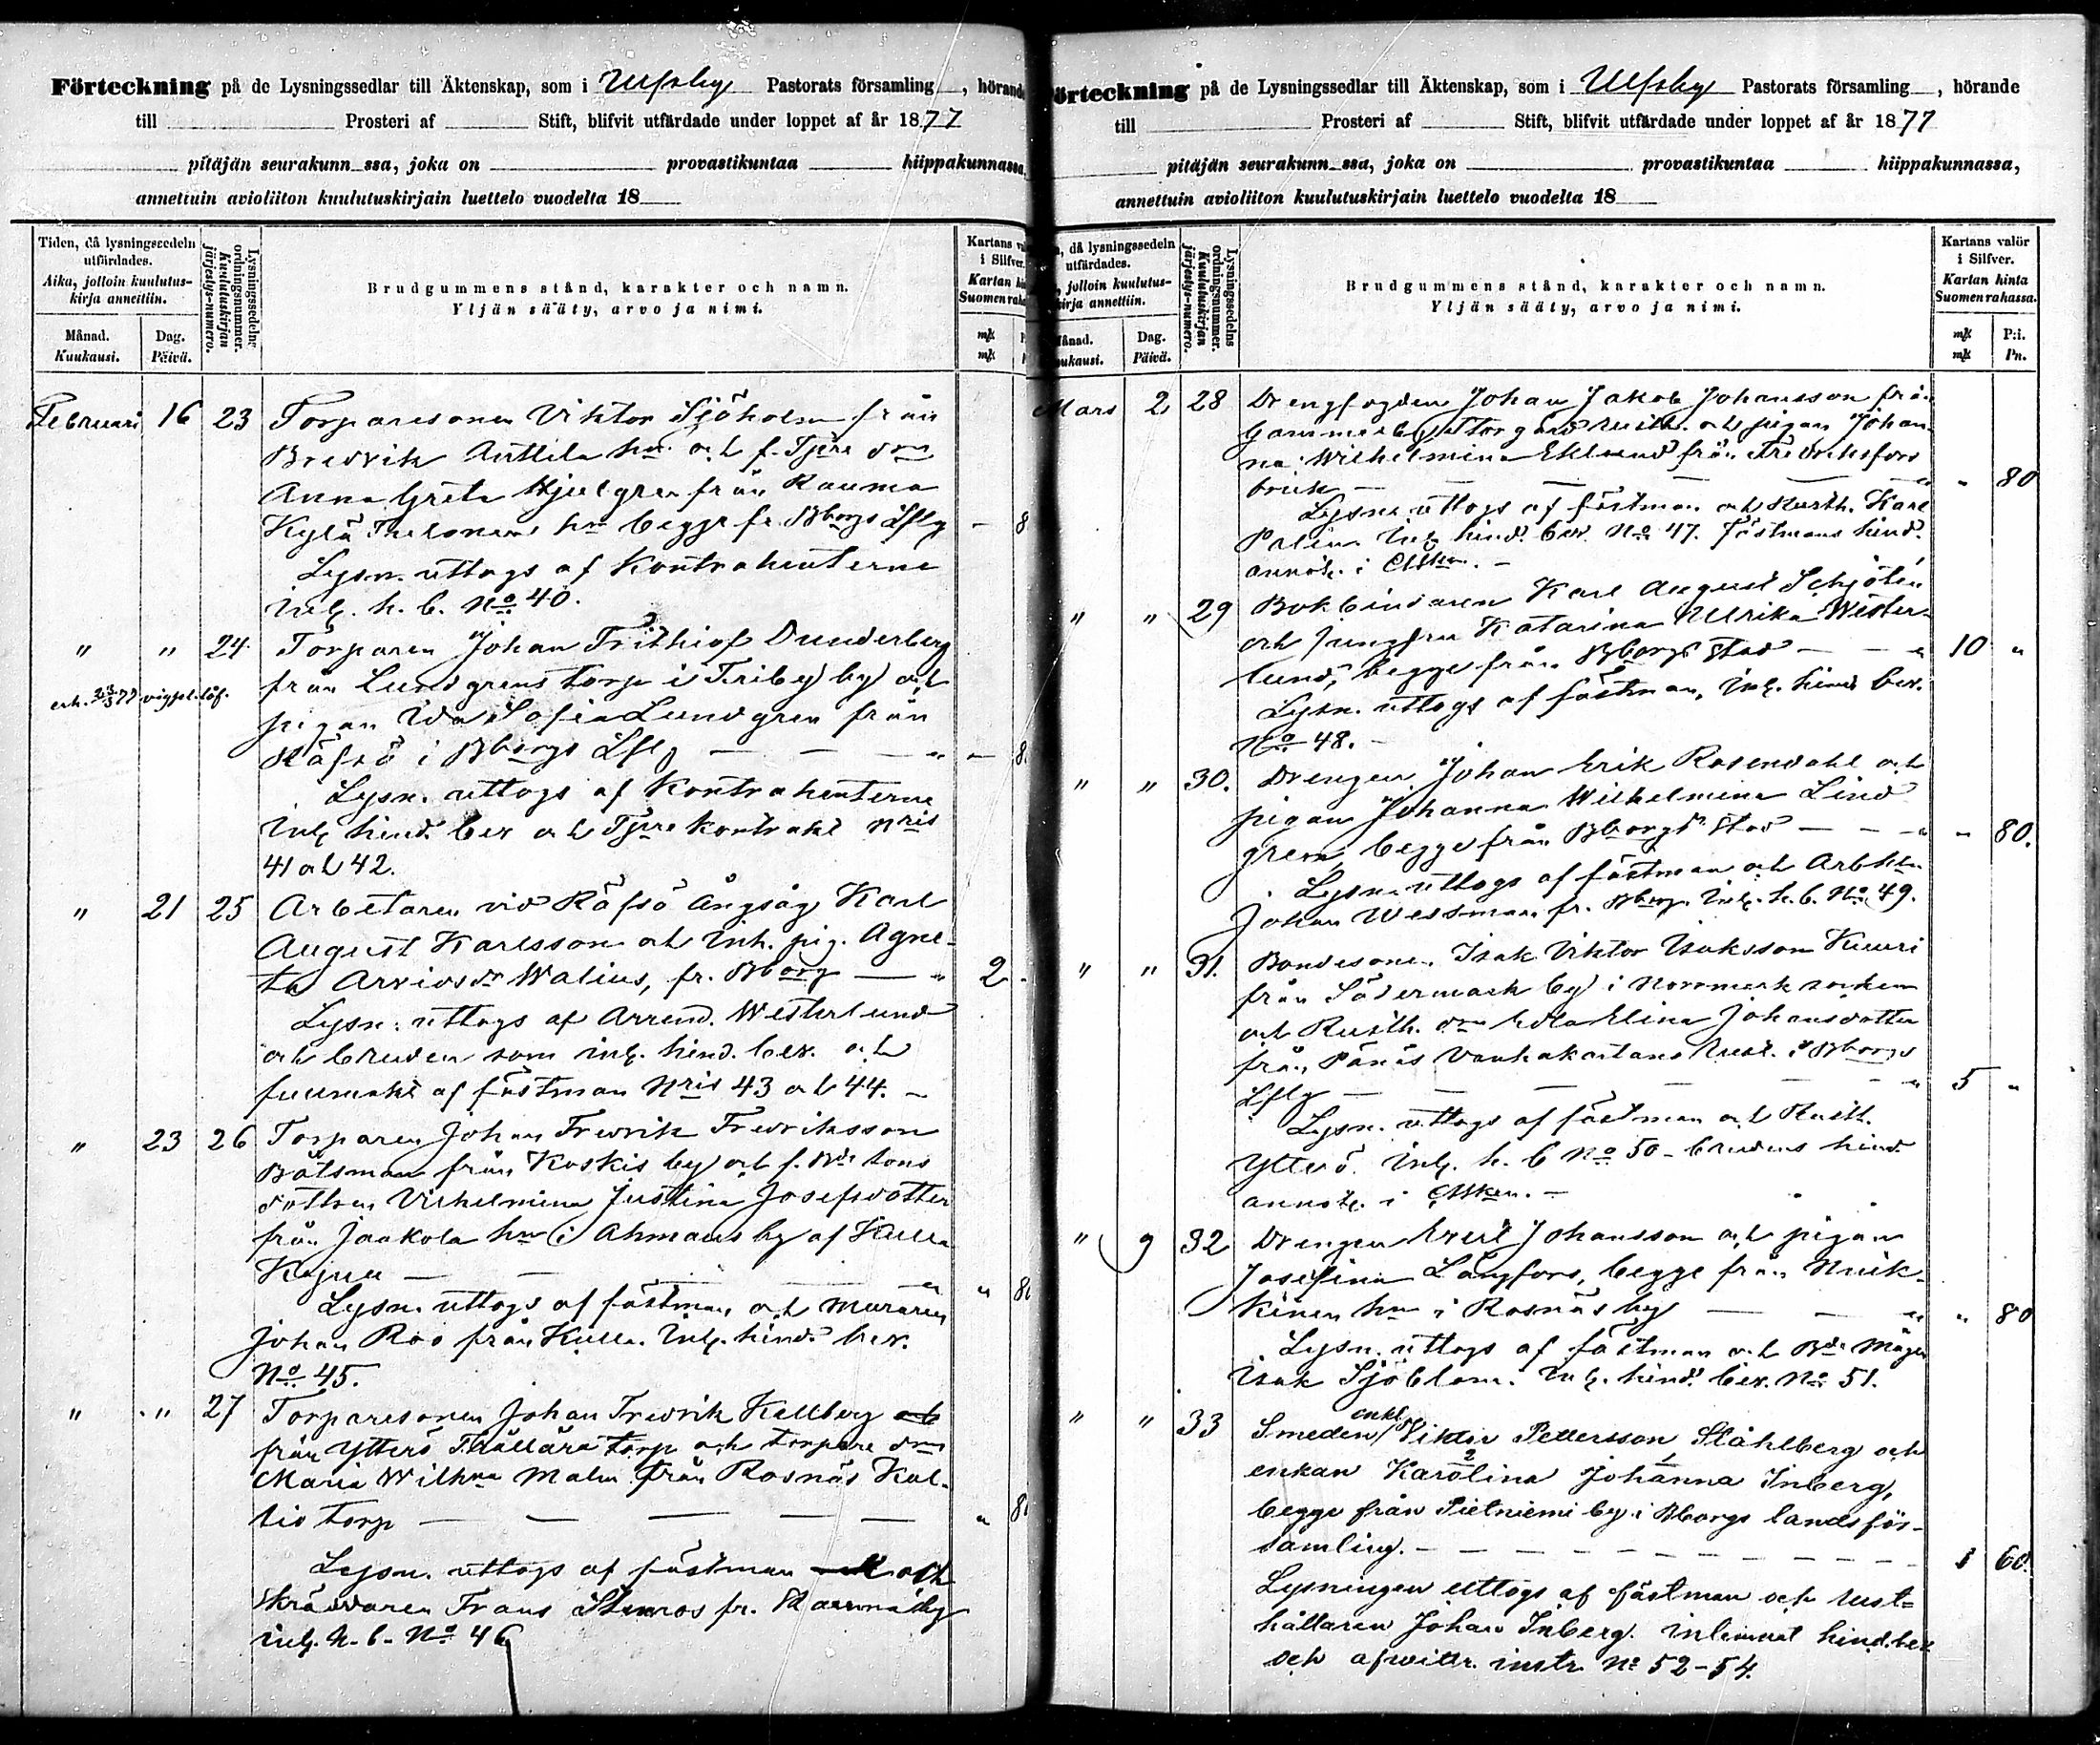 Förteckning på de Lysningssedlar till Äktenskap, som i Ulfsby Pastorats församling , hörande
till Prosteri af Stift, blifvit utfärdade under loppet af år 1877
pitäjän seurakunn ssa, joka on provastikuntaa hiippakunnassa,
annettuin avioliiton kuulutuskirjain luettelo vuodelta 18
Tiden, då lysningssedeln utfärdades.
Aika, jolloin kuulutus-kirja annettiin.
Månad. Kuukausi.
Dag. Päivä.
Lysningssedelns ordningsnummer.
Kuulutuskirjan järjestys-numero.
Brudgummens stånd, karakter och namn.
Yljän sääty, arvo ja nimi.
Kartans
i Silfver.
Kartan
Suomen
mk
mk
Februari 16 23 Torparesonen Viktor Sjöholm från
Bredvik Anttila hn och f. Tjra dn
Anna Greta Hjulgren från Rauma
Kylä hn begge fr. Bborgs Lflg – 8
Lysn. uttogs af Kontrahenterne
Inl. h. b. No 40.
" " 24 Torparen Johan Frithiof Dunderberg
från Lundgrens torp i Friby by och
pigan Ida Sofia Lundgren från
Räfsö i Bborgs Lflg — — " – 8
Lysn. uttogs af Kontrahenterne
Inl. hind. bev och Tjre kontrakt Nris
41 och 42.
" 21 25 Arbetaren vid Räfsö Ångsåg Karl
August Karlsson och inh. pig. Agne-
ta Arvidsdr Walius, fr. Bborg — " 2 -
Lysn. uttogs af Arrend. Westerlund
och bruden som inl. hind. bev. och
fullmakt af fästman Nris 43 och 44. –
" 23 26 Torparen Johan Fredrik Fredriksson
Båtsman från Koskis by och f. Bde sons
dottren Vilhelmina Justina Josefsdotter
från Jaakola hn i Ahmaus by af Kulla
— — — — " " 8
Lysn. uttogs af fästman och muraren
Johan Roo från Kulla. Inl. hind. bev.
No 45.
" " 27 Torparesonen Johan Fredrik Kellberg och
från Ytterö torp och torpare dn
Maria Wilhna Malm från Rosnäs Kal-
lio torp — — — — " 8
Lysn. uttogs af fästman och
Skräddaren Frans Stenros fr.
inl. h. b. No 46
Förteckning på de Lysningssedlar till Äktenskap, som i Ulfsby Pastorats församling , hörande
till Prosteri af Stift, blifvit utfärdade under loppet af år 1877
pitäjän seurakunn ssa, joka on provastikuntaa hiippakunnassa,
annettuin avioliiton kuulutuskirjain luettelo vuodelta 18
, då lysningssedeln utfärdades.
, jolloin kuulutus-kirja annettiin.
Månad. Kuukausi.
Dag. Päivä.
Lysningssedelns ordningsnummer.
Kuulutuskirjan järjestys-numero.
Brudgummens stånd, karakter och namn.
Yljän sääty, arvo ja nimi.
Kartans valör
i Silfver.
Kartan hinta
Suomen rahassa.
mk P:i.
mk Pn.
Mars 2 28 Drengfogden Johan Jakob Johansson från
Gammelby Storgård rusth. och pigan Johan-
na Wilhelmina Eklund från Fredriksfors
bruk — — — — " " 80
Lysn. uttogs af fästman och Rusth. Karl
Palin. Inl. hind. bev. No 47. Fästmans hind.
annot. i
" " 29 Bokbindaren Karl August Schjölin
och jungfru Katarina Ulrika Wester-
lund, begge från Bborgs stad — — " 10 "
Lysn. uttogs af fästman, inl. hind. bev.
No 48. –
" " 30. Drengen Johan Erik Rosendahl och
pigan Johanna Wilhelmina Lind
gren, begge från Bborgs stad — — " " 80.
Lysn. uttogs af fästman och Arbkn
Johan Wessman fr. Bborg. Inl. h. b. No 49.
" " 31. Bondesonen Isak Viktor Isaksson Kuuri
från Södermark by i Norrmark socken
och Rusth. dn Edla Elina Johansdotter
från Pänäs Vanhakartano rust. i Bborgs
Lflg — — — — " 5 "
Lysn. uttogs af fästman och Rusth.
Ytterö. Inl. h. b No 50 – brudens hind.
annot. i
" 9 32 Drengen Evert Johansson och pigan
Josefina Långfors, begge från
kinen hn i Rosnäs by — — " " 80
Lysn. uttogs af fästman och Bde Mågen
Isak Sjöblom. Inl. hind. bev. No 51.
" " 33 Smeden enkl. Viktor Pettersson Ståhlberg och
enkan Karolina Johanna Inberg,
begge från Pietniemi by i Bborgs landsför-
samling. – – – – – – – – – 1 60.
Lysningen uttogs af fästman och rust=
hållaren Johan Inberg. inlemnat hind.bev
och afwittr. instr. No 52–54.